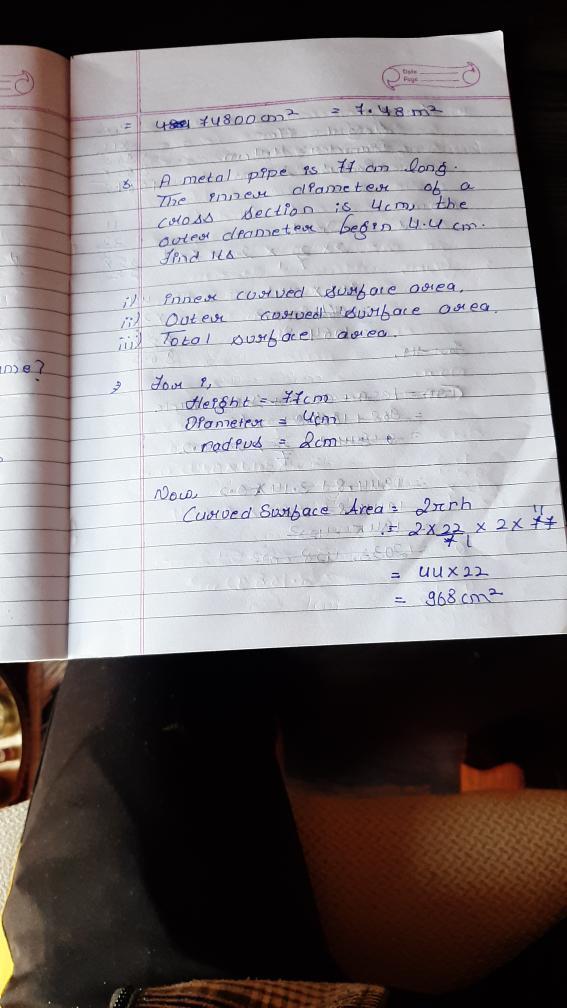 Date
Page
= 74800 cm² = 7.48 m²
A metal pipe is 77 cm long.
The inner diameter of a
cross section is 4cm, the
outer diameter begin 4.4 cm.
find its
i) inner curved surface area.
ii) Outer curved surface area.
iii) Total surface area.
?
→ For i,
Height = 77cm
Diameter = 4cm
radius = 2cm
Now
Curved Surface Area = 2πrh
= 2 × 22/7 × 2 × 77
11
1
= 44 × 22
= 968 cm²